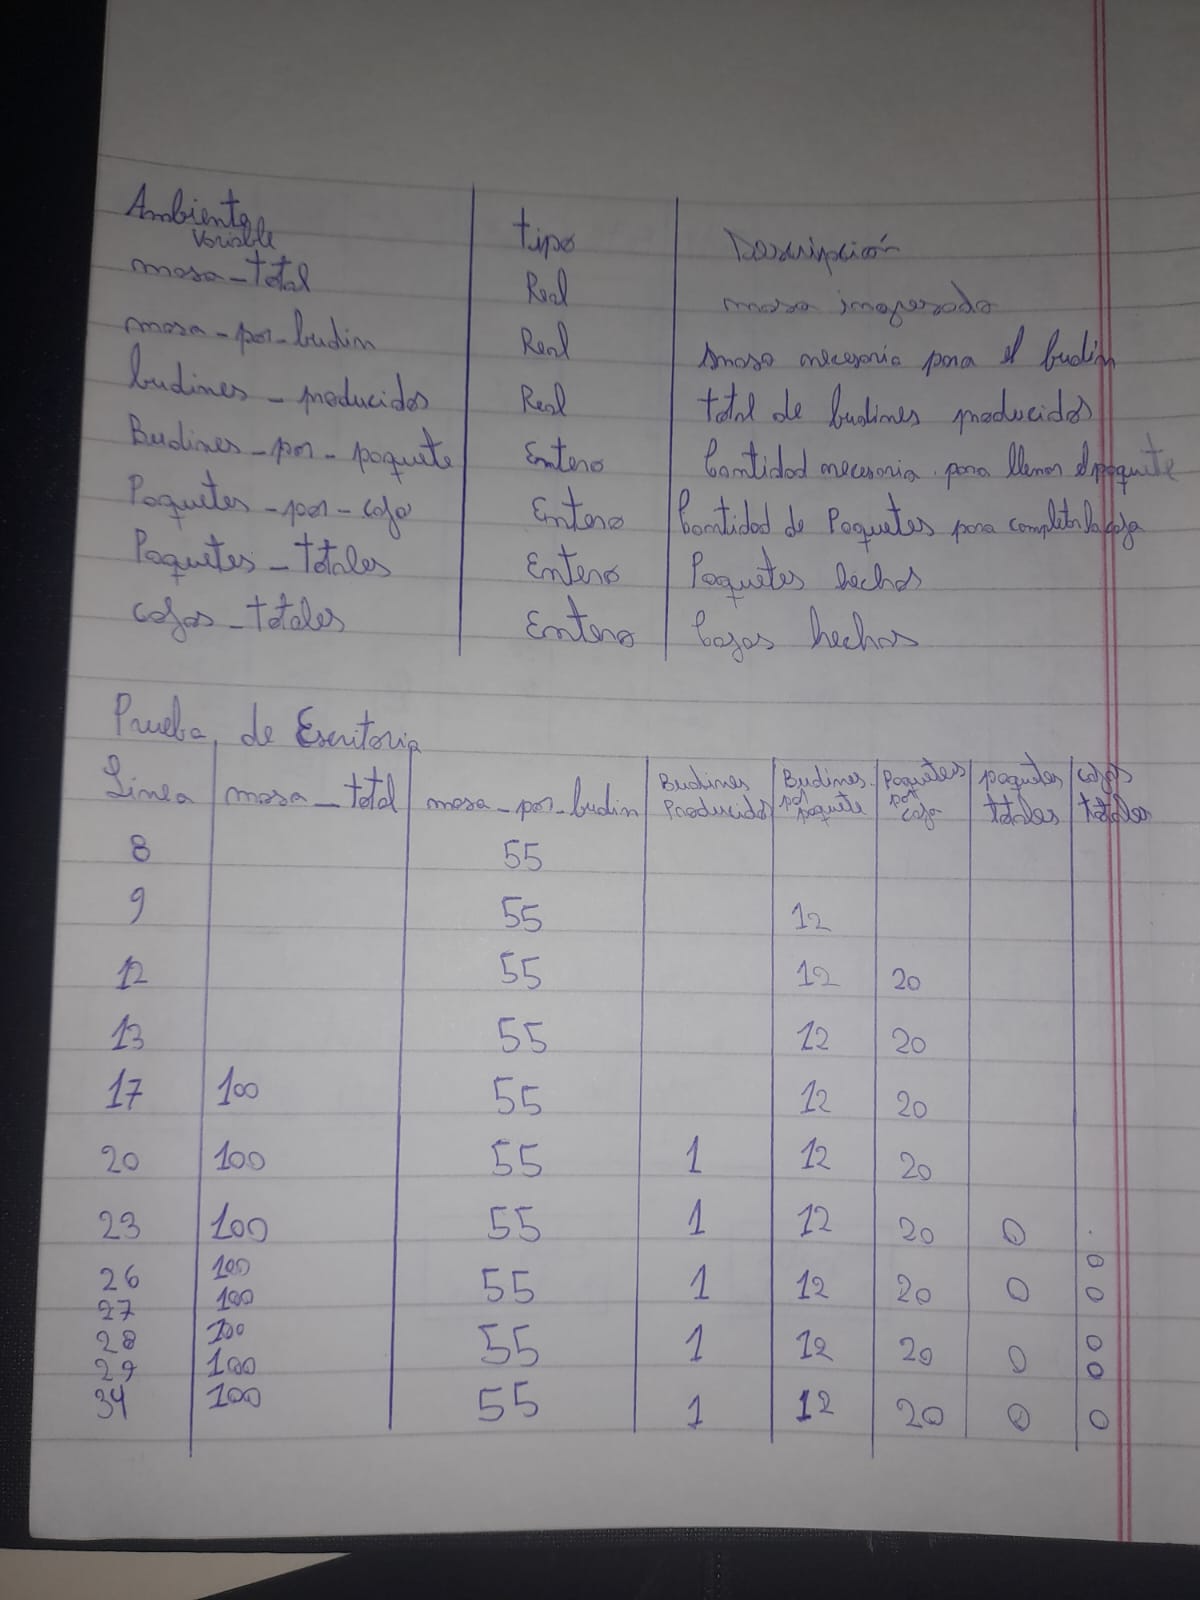 Ambiente
Variable tipo Descripción
masa-total Real masa ingresada
masa-por-budin Real masa necesaria para el budin
budines-producidos Real total de budines producidos
Budines-por-paquete Entero Cantidad necesaria para llenar el paquete
Paquetes-por-caja Entero Cantidad de Paquetes para completar la caja
Paquetes-totales Entero Paquetes hechos
cajas-totales Entero Cajas hechas
Prueba de Escritoria
Linea masa-total masa-por-budin Budines Producidos Budines por paquete Paquetes por caja paquetes totales cajas totales
8 55
9 55 12
12 55 12 20
13 55 12 20
17 100 55 12 20
20 100 55 1 12 20
23 100 55 1 12 20 0 .
26 100 0
27 100 55 1 12 20 0 0
28 100 0
29 100 55 1 12 20 0 0
34 100 55 1 12 20 0 0